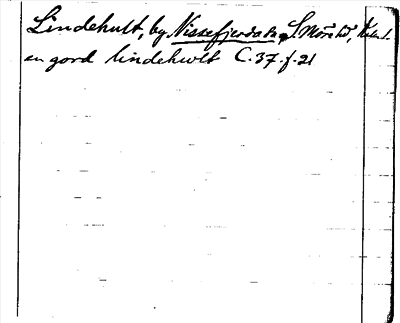 Lindehult, by Nissefjerda S. Möre hd, Kalm l.
en gord lindehwlt C. 37. f. 21